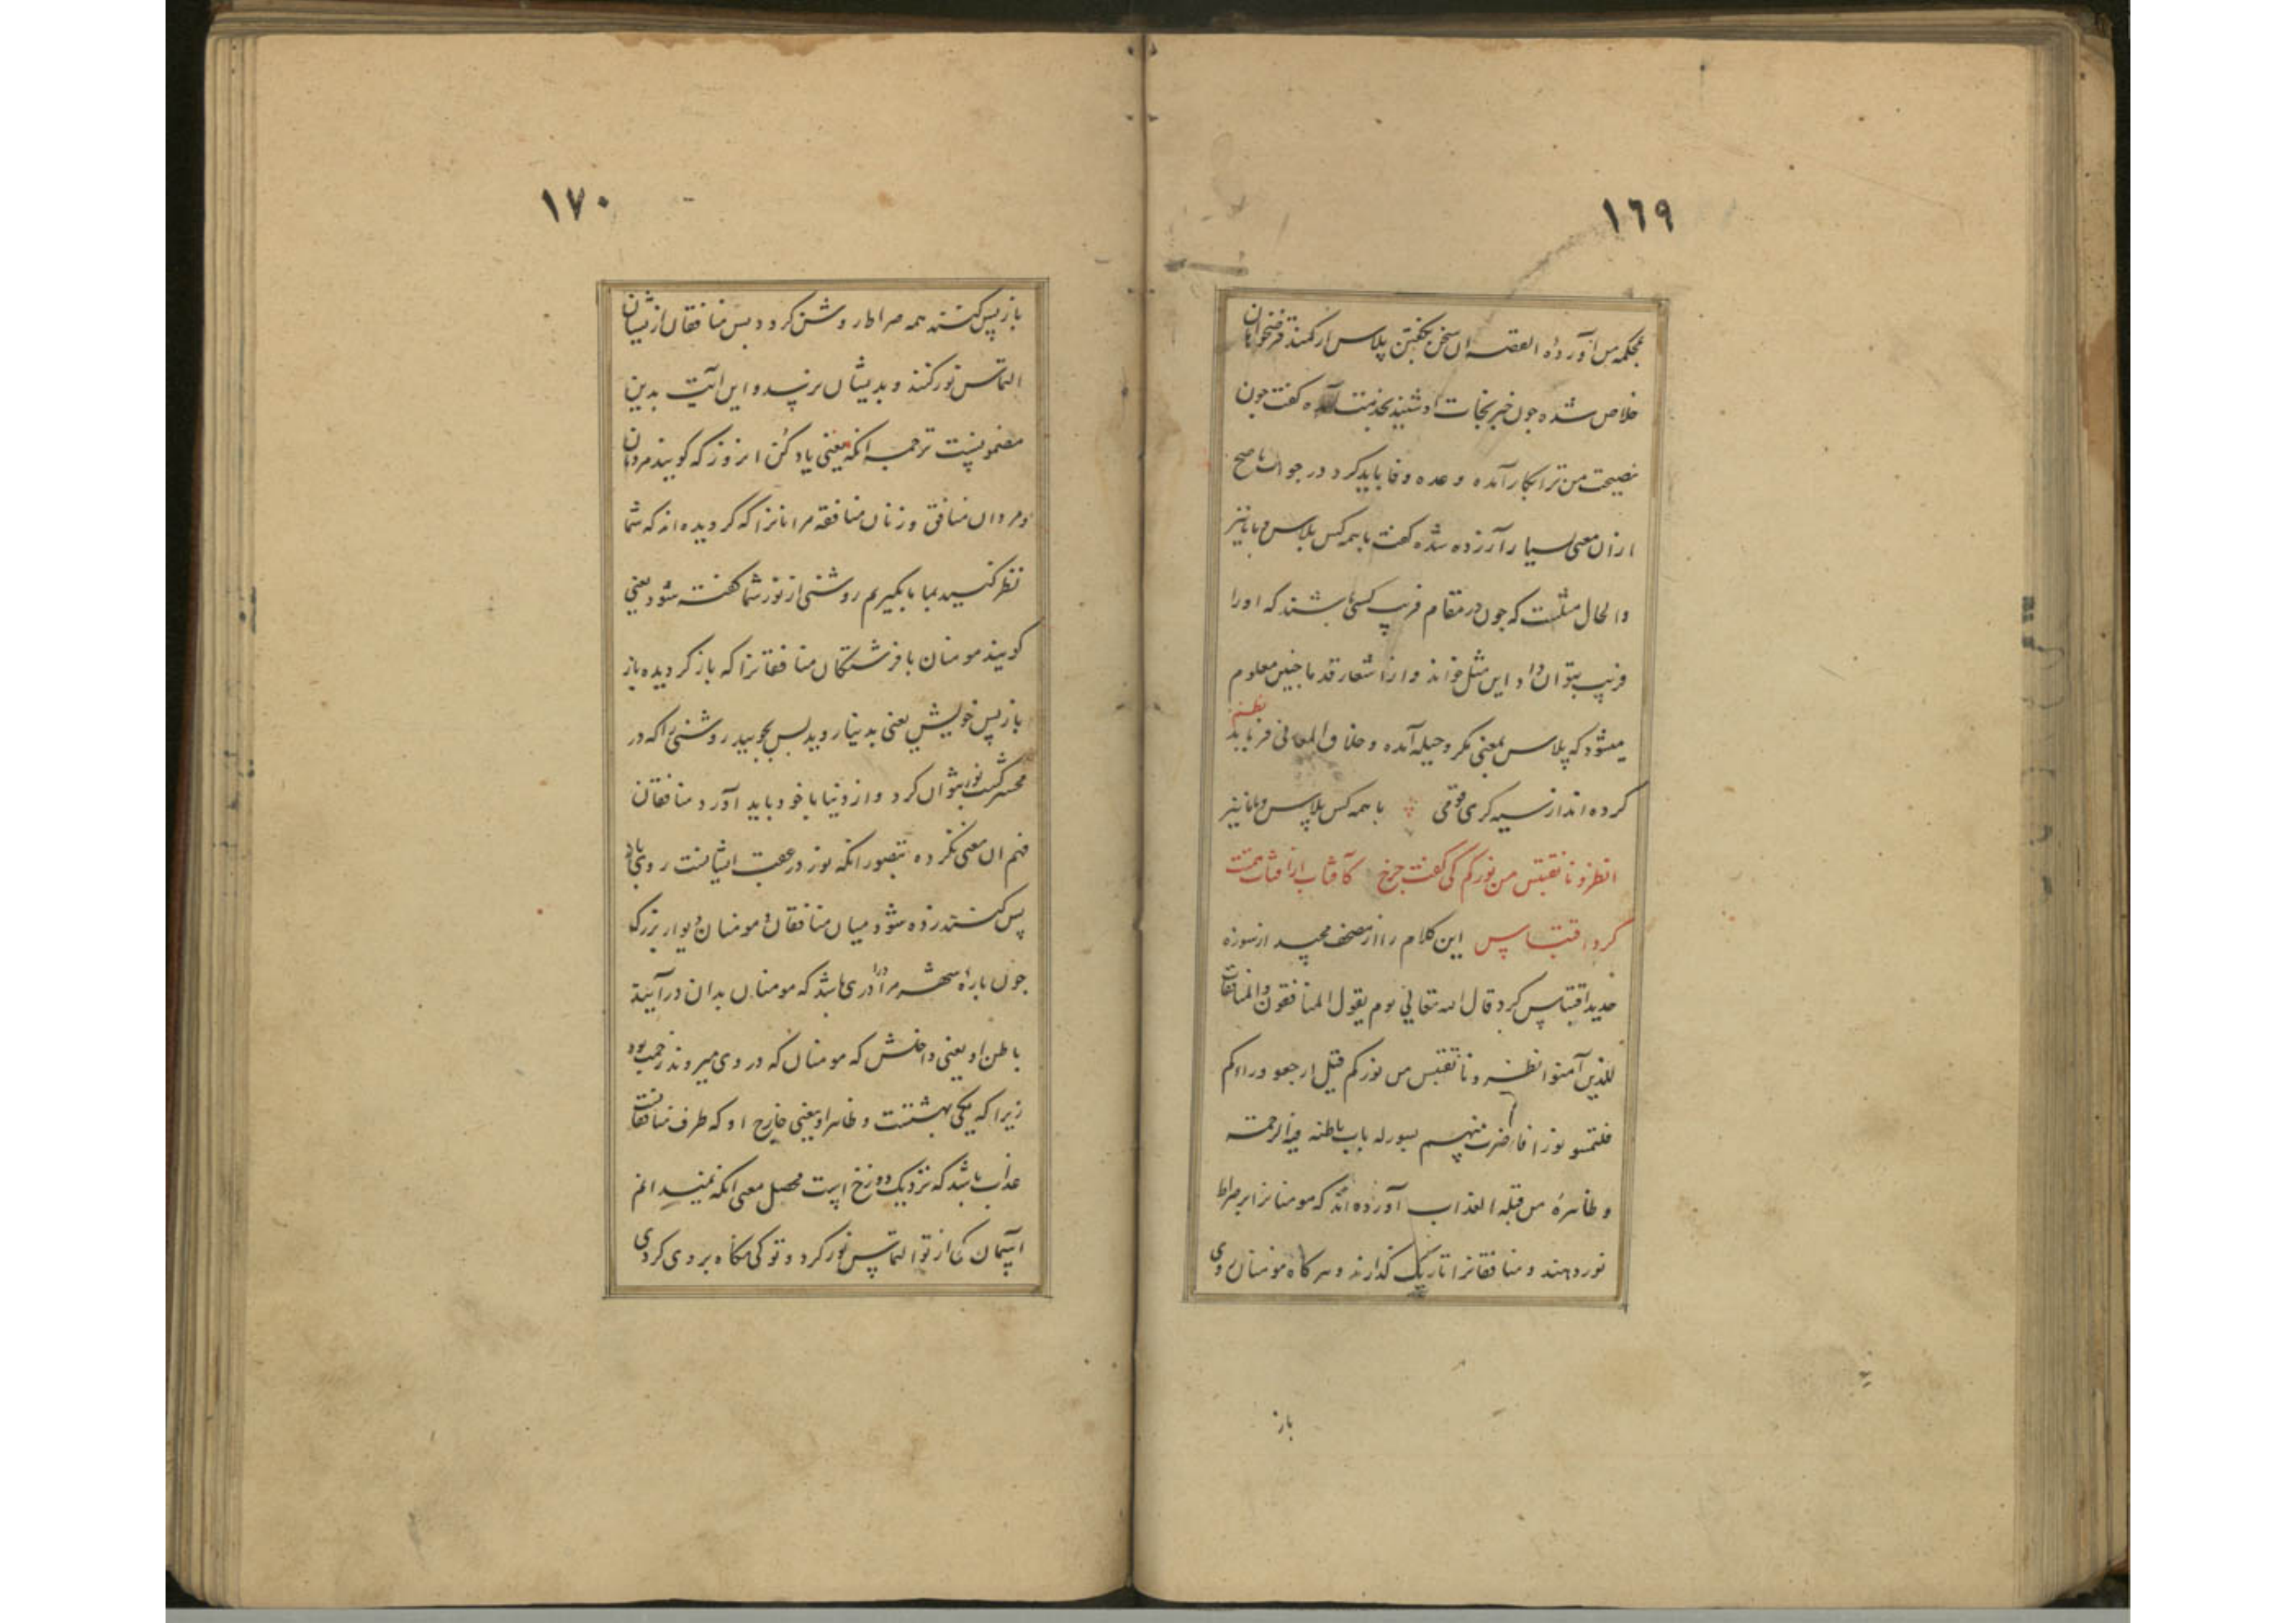 ١٦٩
بمحکمه من آورده القصه ان سخن بگفتن پلاس از کمند قرضخواهان
خلاص شده جون خبر نجات او شنید بخدمت آمده کفت جون
نصیحت من ترا بکار آمده وعده وفا باید کرد در جواب ناصح
ازان معنی بسیار آزرده شده کفت با همه کس پلاس و با ما نیز
والحال مثلست که جون در مقام فریب کسی باشند که او را
فریب بتوان داد این مثل خواند و از اشعار قدما جنین معلوم
میشود که پلاس بمعنی مکر و حیله آمده و خلاق المعانی فرماید نظم
کرده اند از سیه کری قومی با همه کس پلاس و با ما نیز
انظرونا نقتبس من نورکم کی کفت جرخ کافتاب از آفتاب همتت
کرد اقتباس این کلام را از مصحف مجید از سوره
حدید اقتباس کرد قال الله تعالی یوم یقول المنافقون والمنافقات
للذین آمنوا انظرونا نقتبس من نورکم قیل ارجعو وراءکم
فلتمسو نورا فاضرب بینهم بسور له باب باطنه فیه الرحمة
و ظاهره من قبله العذاب آورده اند که مومنانرا بر صراط
نور دهند و منافقانرا تاریک کذارند و هر کاه مومنان روی
باز
١٧٠
باز پس کنند همه صراط روشن کردد پس منافقان از پیشان
التماس نور کنند و بدیشان نرسد و این آیت بدین
مضمونست ترجمه انکه یعنی یاد کن انروز که کویند مردمان
مردان منافق و زنان منافقه مر انانرا که کردیده اند که شما
نظر کنید بما تا بکیریم روشنی از نور شما کفته شود یعنی
کویند مومنان یا فرشتکان منافقانرا که باز کردیده باز
باز پس خویش یعنی بدنیا روید پس بجویید روشنی را که در
محشر کسب نور نتوان کرد و از دنیا با خود باید آورد منافقان
فهم ان معنی نکرده بتصور انکه نور در عقب ایشانست روی باز
پس کنند زده شود میان منافقان و مومنان دیوار بزرک
جون باره شهر مر او را دری باشد که مومنان بدان درآیند
باطن او یعنی داخلش که مومنان که در وی میروند رحمت بود
زیرا که یکی بهشتست و ظاهر او یعنی خارج او که طرف منافقانست
عذاب باشد که نزدیک دوزخ است محصل معنی انکه
آسمان کی از تو التماس نور کرد و تو کی نکاه بر وی کردی